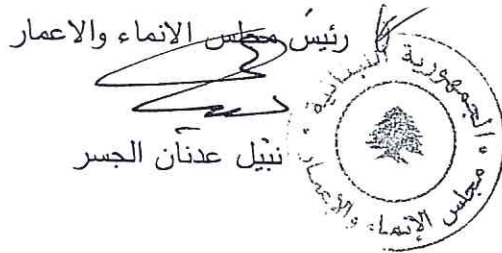 رئيس مجلس الانماء والاعمار
نبيل عدنان الجسر
الجمهورية اللبنانية
مجلس الإنماء والإعمار